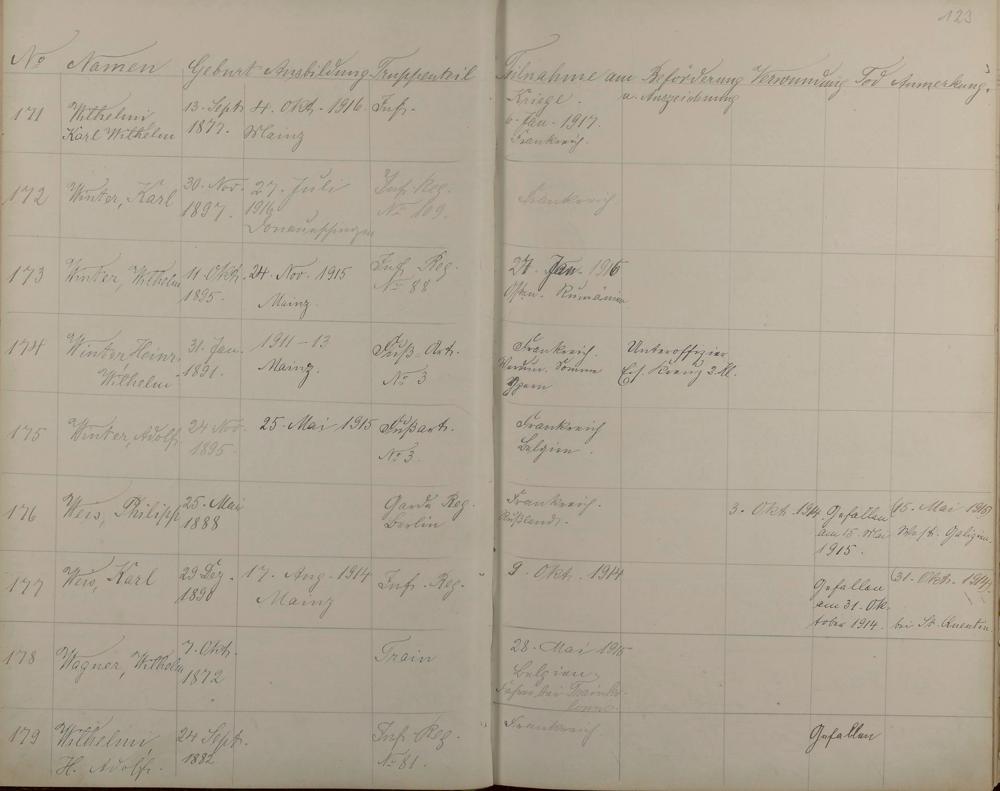 123
No Namen Geburt Ausbildung Truppenteil Teilnahme am Kriege. Beförderung u. Auszeichnung Verwundung Tod Anmerkung.
171 Wilhelmi, Karl Wilhelm 13. Sept. 1877. 4. Okt. 1916 Mainz Inf. 6. Jan. 1917. Frankreich.
172 Winter, Karl 30. Nov. 1897. 27. Juli 1916 Donaueschingen Inf. Reg. No 109. Frankreich
173 Winter, Wilhelm 11. Okt. 1895. 24. Nov. 1915 Mainz. Inf. Reg. No 88 27. Jan. 1916 Osten. Rumänien
174 Winter, Heinr. Wilhelm 31. Jan. 1891. 1911-13 Mainz. Fuß. Art. No 3 Frankreich. Verdun. Somme Ypern Unteroffizier Eis. Kreuz 2. Kl.
175 Winter, Adolf 24 Nov. 1895. 25. Mai 1915 Fußart. No 3. Frankreich Belgien.
176 Weis, Philipp 25. Mai 1888 Garde Reg. Berlin Frankreich. Rußland. 3. Okt. 1914. Gefallen am 15. Mai 1915. (15. Mai 1915 Westl. Galizien.
177 Weis, Karl 29 Dez. 1890 17. Aug. 1914 Mainz Inf. Reg. 9. Okt. 1914 Gefallen am 31. Oktober 1914. (31. Okt. 1914). bei St. Quentin.
178 Wagner, Wilhelm 7. Okt. 1872 Train 28. Mai 1915 Belgien.
179 Wilhelmi, H. Adolf. 24 Sept. 1882 Inf. Reg. No 81. Frankreich Gefallen